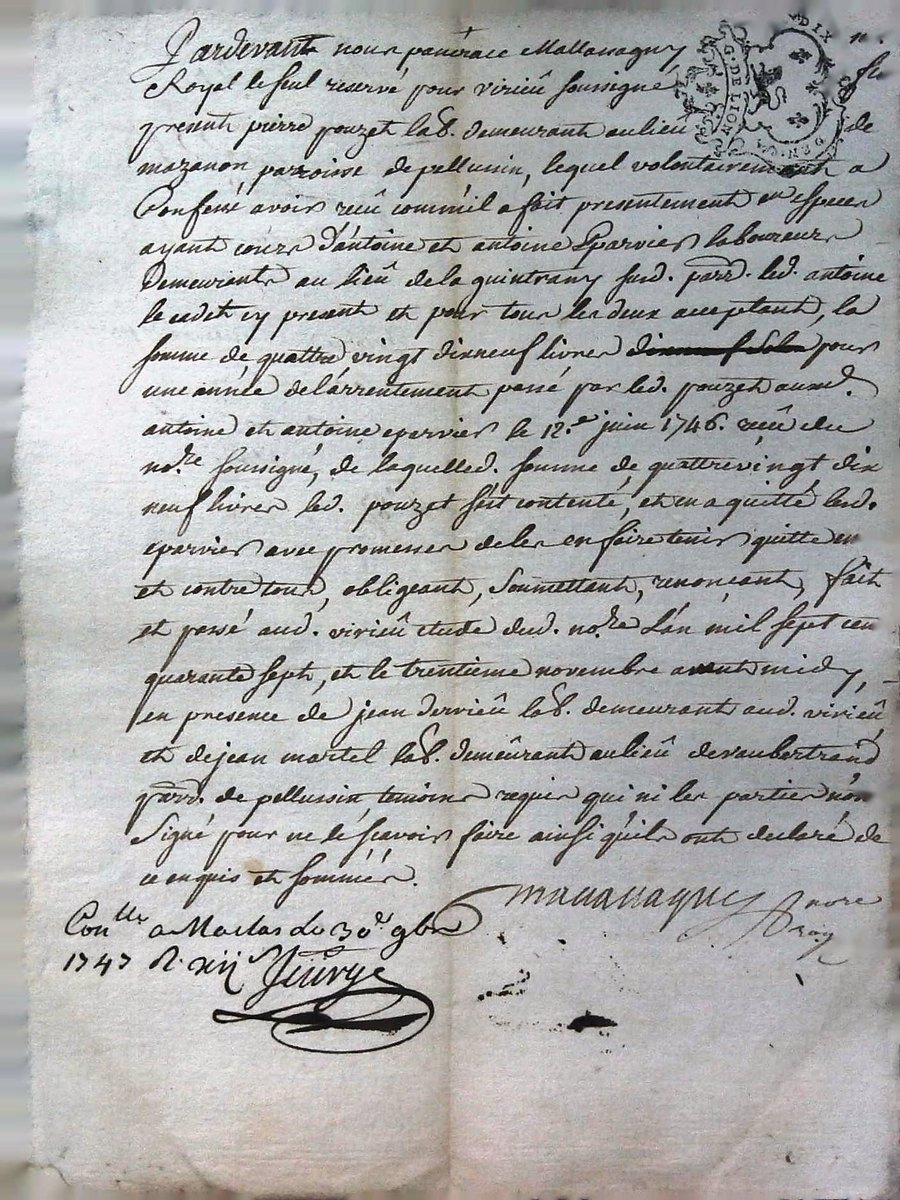 Pardevant nous pancrace Mallassagny n.
Royal le seul reservé pour virieû soussigné fu
present pierre pouzet lab. demeurant au lieu de
mazanon parroisse de pellussin, lequel volontairement a
Confessé avoir recû comm'il a fait presentement en especes
ayant cours d'antoine et antoine Eparvier laboureurs
demeurants au lieû de la guintrany susd. parr. led. antoine
le cadet cy present et pour tous les deux acceptant, la
somme de quattre vingt dixneuf livres dixneuf sols pour
une année de l'arrentement passé par led. pouzet auxd.
antoine et antoine eparvier le 12.e juin 1746. recû du
no.re soussigné, de laquelled. somme de quattre vingt dix
neuf livres led. pouzet s'est contenté, et en a quitté lesd.
eparvier avec promesses de les en faire tenir quitte en
et contre tous, obligeant, soumettant, renonçant, fait
et passé aud. virieû etude dud. no.re L'an mil sept cen
quarante sept, et le trentieme novembre avant midy,
en presence de jean dervieû lab. demeurant aud. virieû
et de jean martel lab. demeûrant au lieû de vaubertrand
parr. de pellussin temoins requis qui ni les parties n'on
signé pour ne le scavoir faire ainsi qu'ils ont declaré de
ce enquis et sommés.
Mallassagny no.re roy
Con.lle a Maclas du 30.e 9bre
1747 R. xij
G. DE LION
DIX
DEN.